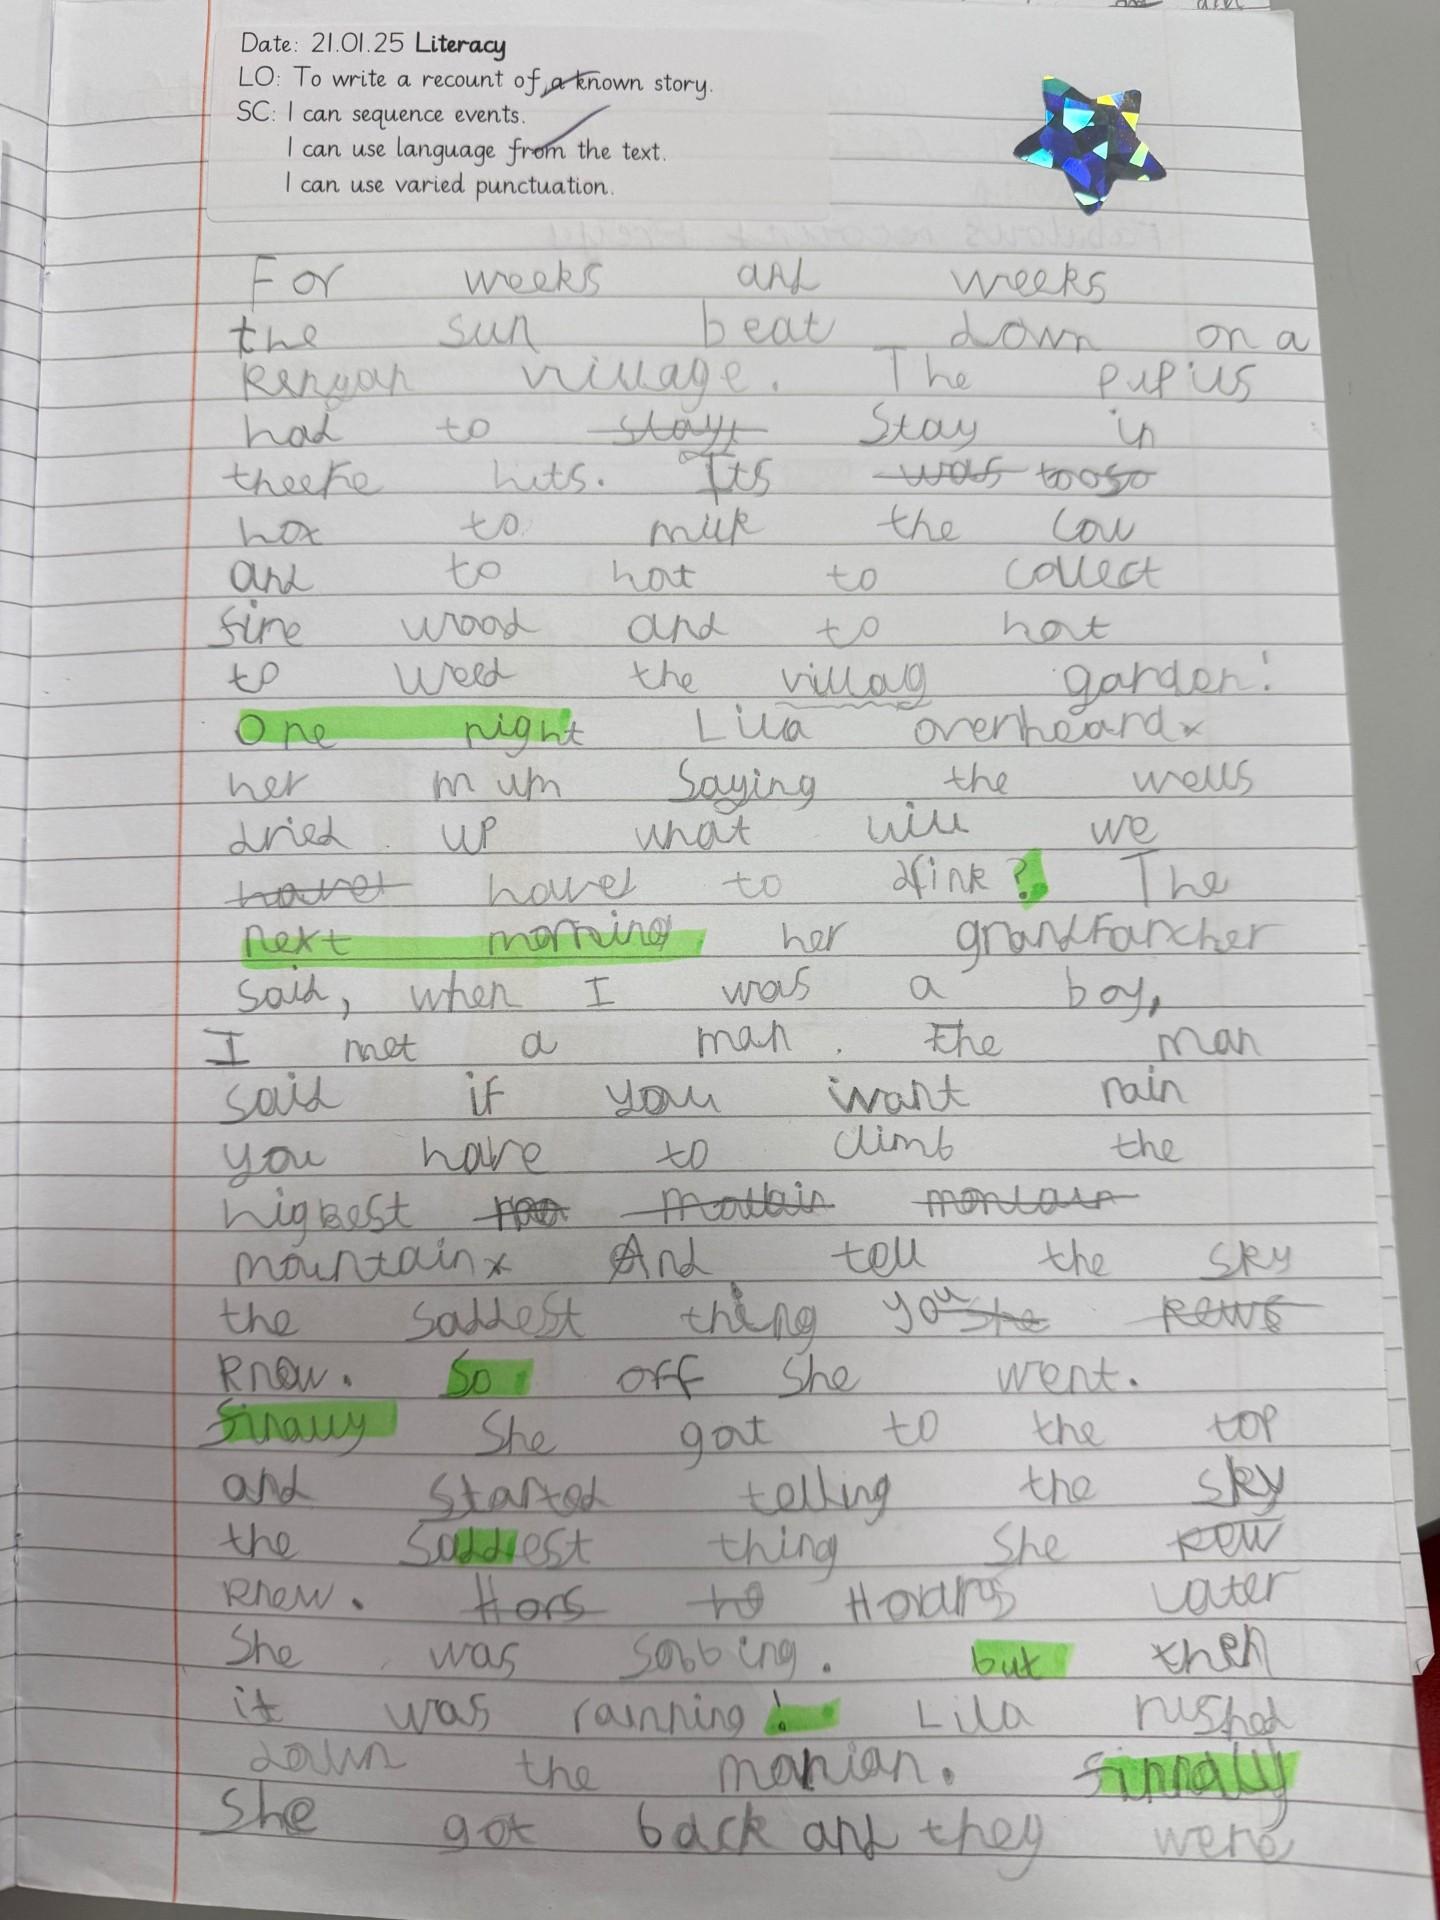 Date: 21.01.25 Literacy
LO: To write a recount of a known story.
SC: I can sequence events.
I can use language from the text.
I can use varied punctuation.
For weeks and weeks
the sun beat down on a
Kenyan village. The pupils
had to stay Stay in
theere huts. Its was tooso
hot to milk the cow
and to hot to collect
fire wood and to hot
to weed the villag garden!
One night Lila overheard
her mum Saying the wells
dried up what will we
havet havet to drink? The
next morning her grandfarther
said, when I was a boy,
I met a man. The man
said if you want rain
you have to climb the
highest moo moutain montain
mountain And tell the sky
the saddest thing you she kews
knew. So off she went.
finally She got to the top
and started telling the sky
the saddest thing She kew
knew. Hors to Hours later
She was sobbing. but then
it was rainning! Lila rushed
down the manian. finnally
She got back and they were